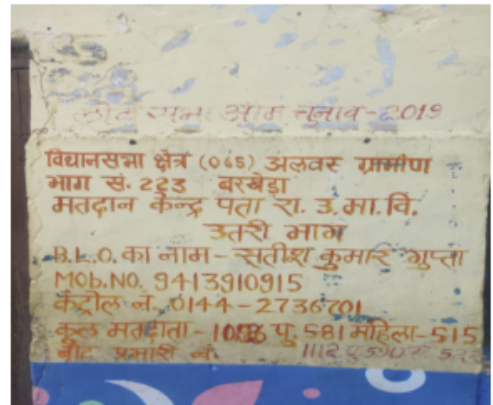 लोक सभा आम चुनाव-2019
विधानसभा क्षेत्र (065) अलवर ग्रामीण
भाग सं. 223 बरखेड़ा
मतदान केन्द्र पता रा. उ. मा. वि.
उतरी भाग
B.L.O. का नाम - सतीश कुमार गुप्ता
Mob. NO. 9413910915
कंट्रोल नं. 0144-2736701
कुल मतदाता - पु. 581 महिला-515
बीट प्रभारी नं 1112